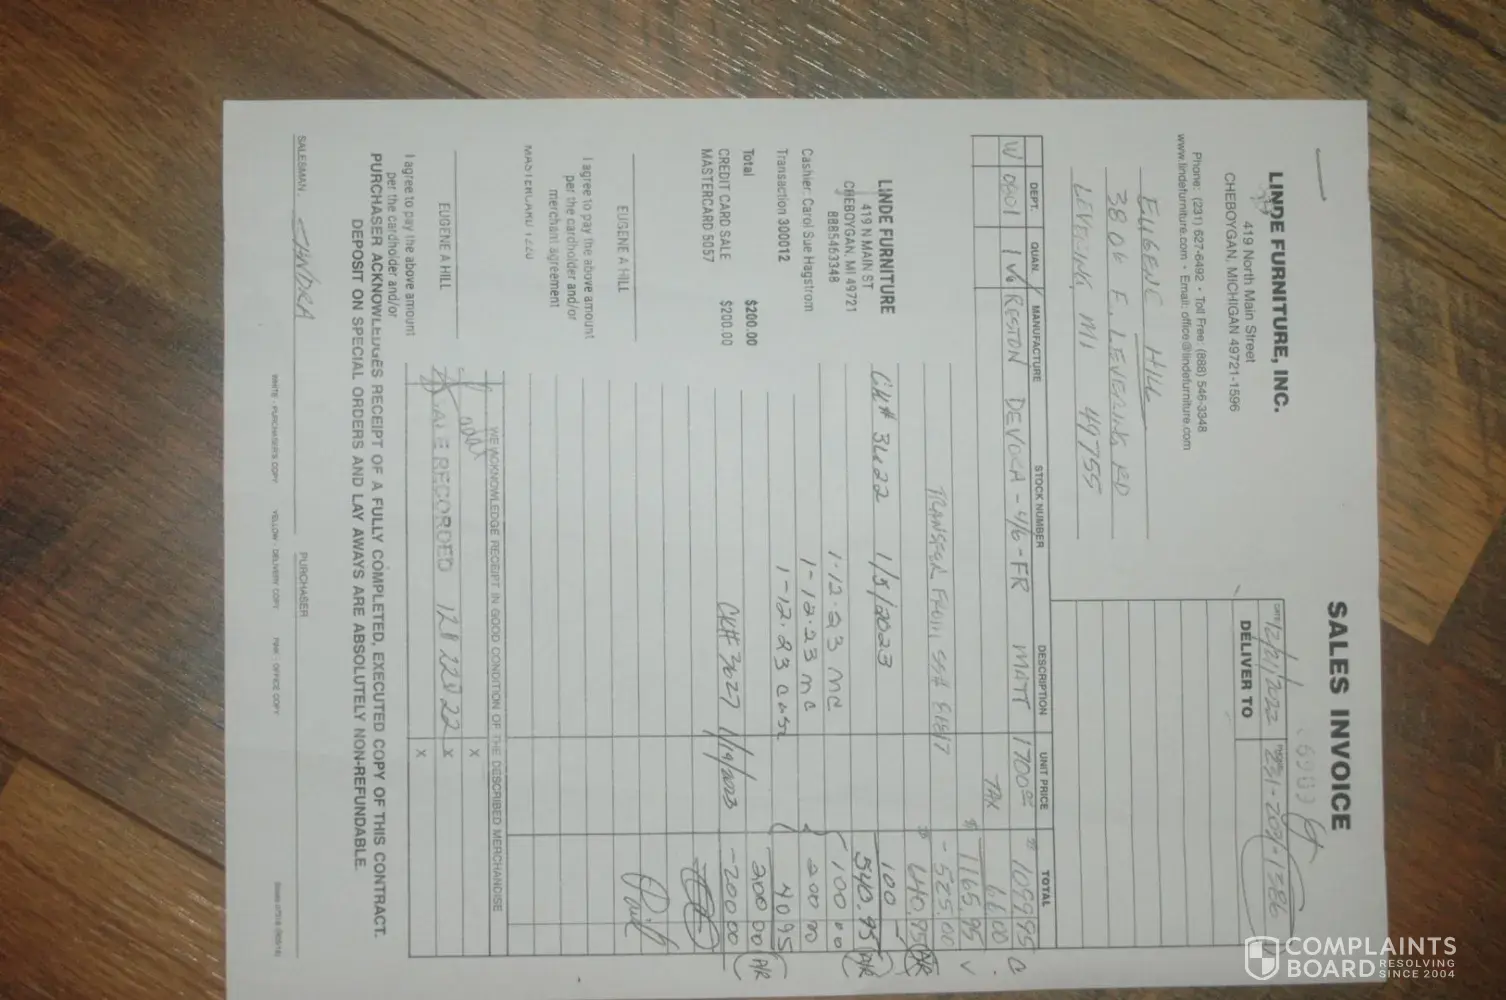 SALES INVOICE
LINDE FURNITURE, INC.
419 North Main Street
CHEBOYGAN, MICHIGAN 49721-1596
Phone: (231) 627-6492 • Toll Free: (888) 546-3348
www.lindefurniture.com • Email: office@lindefurniture.com
DATE 12/21/2022
DELIVER TO
EUGENE HILL
3806 E. LEVERING RD
LEVERING, MI 49755
DEPT. QUAN. MANUFACTURE STOCK NUMBER DESCRIPTION UNIT PRICE TOTAL
W 0001 1 RESTON DEVOCA - 4/6 - FR MATT 1700.00 $1099.95 C
TAX 66.00
$1165.95
TRANSFER FROM SS# E1817 - 525.00
$640.95 A/R
CK# 3622 1/5/2023 100 -
540.95 A/R
1-12-23 MC 100.00
1-12-23 MC 200.00
1-12-23 Cash 40.95
200.00 A/R
CK# 3627 1/19/2023 -200.00
Paid
LINDE FURNITURE
419 N MAIN ST
CHEBOYGAN, MI 49721
8885463348
Cashier: Carol Sue Hagstrom
Transaction 300012
Total $200.00
CREDIT CARD SALE $200.00
MASTERCARD 5057
EUGENE A HILL
I agree to pay the above amount
per the cardholder and/or
merchant agreement
EUGENE A HILL
I agree to pay the above amount
per the cardholder and/or
WE ACKNOWLEDGE RECEIPT IN GOOD CONDITION OF THE DESCRIBED MERCHANDISE
X
SALE RECORDED 12/22/22 X
X
PURCHASER ACKNOWLEDGES RECEIPT OF A FULLY COMPLETED, EXECUTED COPY OF THIS CONTRACT.
DEPOSIT ON SPECIAL ORDERS AND LAY AWAYS ARE ABSOLUTELY NON-REFUNDABLE.
SALESMAN SANDRA PURCHASER
WHITE - PURCHASER'S COPY YELLOW - DELIVERY COPY PINK - OFFICE COPY
COMPLAINTS
BOARD RESOLVING
SINCE 2004